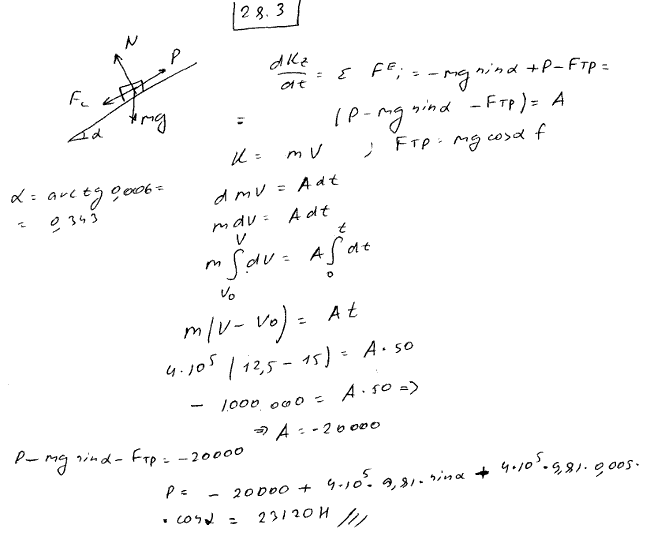 28.3
N
P
Fc
mg
α
dKz/dt = Σ F^E i = -mg sinα + P - Fтр =
= (P - mg sinα - Fтр) = A
K = mV ; Fтр = mg cosα f
α = arctg 0,006 =
= 0,343
d mV = A dt
m dV = A dt
m ∫_{V0}^{V} dV = A ∫_{0}^{t} dt
m(V - V0) = At
4·10^5 (12,5 - 15) = A·50
- 1000.000 = A·50 =>
=> A = -20000
P - mg sinα - Fтр = -20000
P = - 20000 + 4·10^5·9,81·sinα + 4·10^5·9,81·0,005·
·cosα = 23120 H